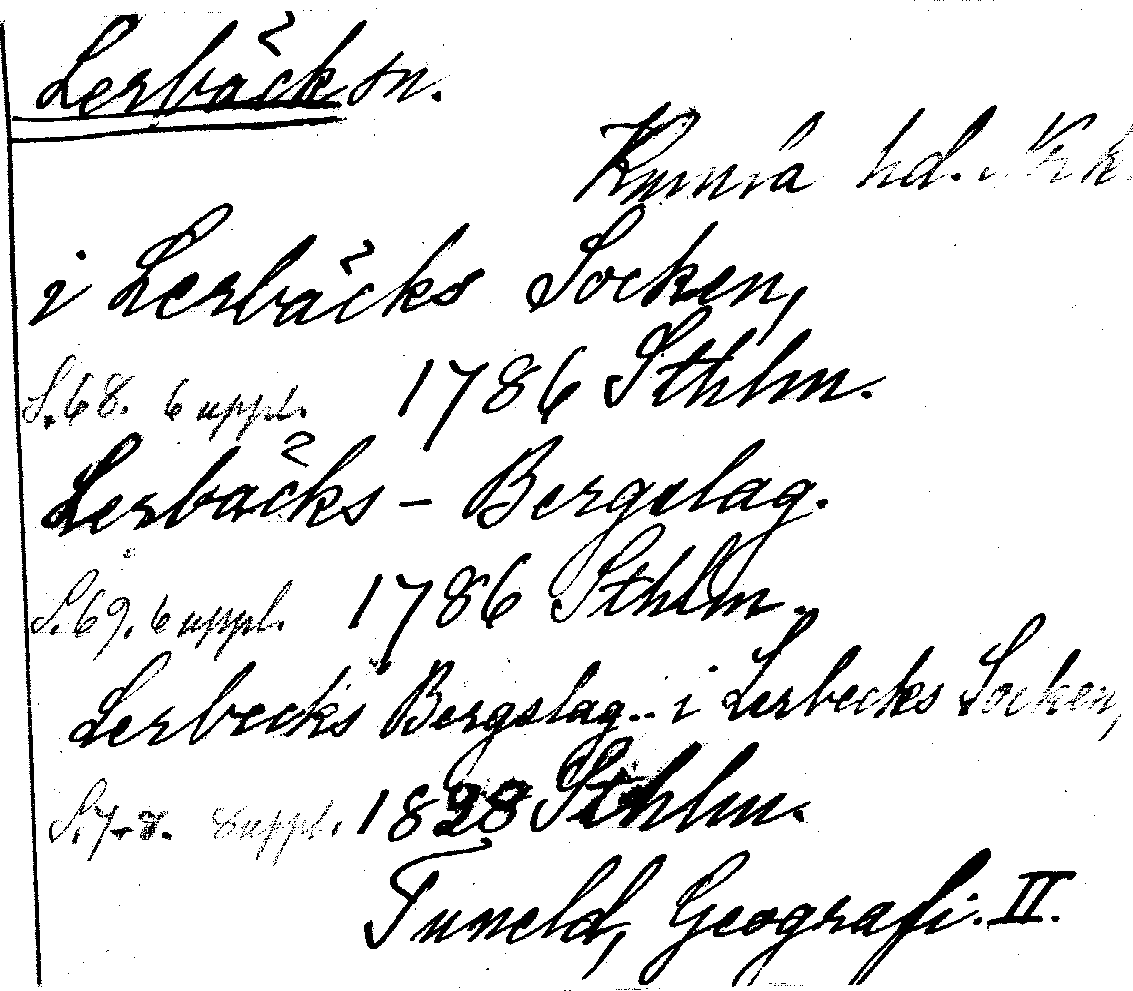 Lerbäck sn.
Kumla hd. Nrk.
i Lerbäcks Socken,
S.68. 6 uppl. 1786 Sthlm.
Lerbäcks - Bergslag.
S.69. 6 uppl. 1786 Sthlm.
Lerbecks Bergslag.. i Lerbecks Socken,
S.7-8. 8 uppl. 1828 Sthlm.
Tuneld, Geografi. II.